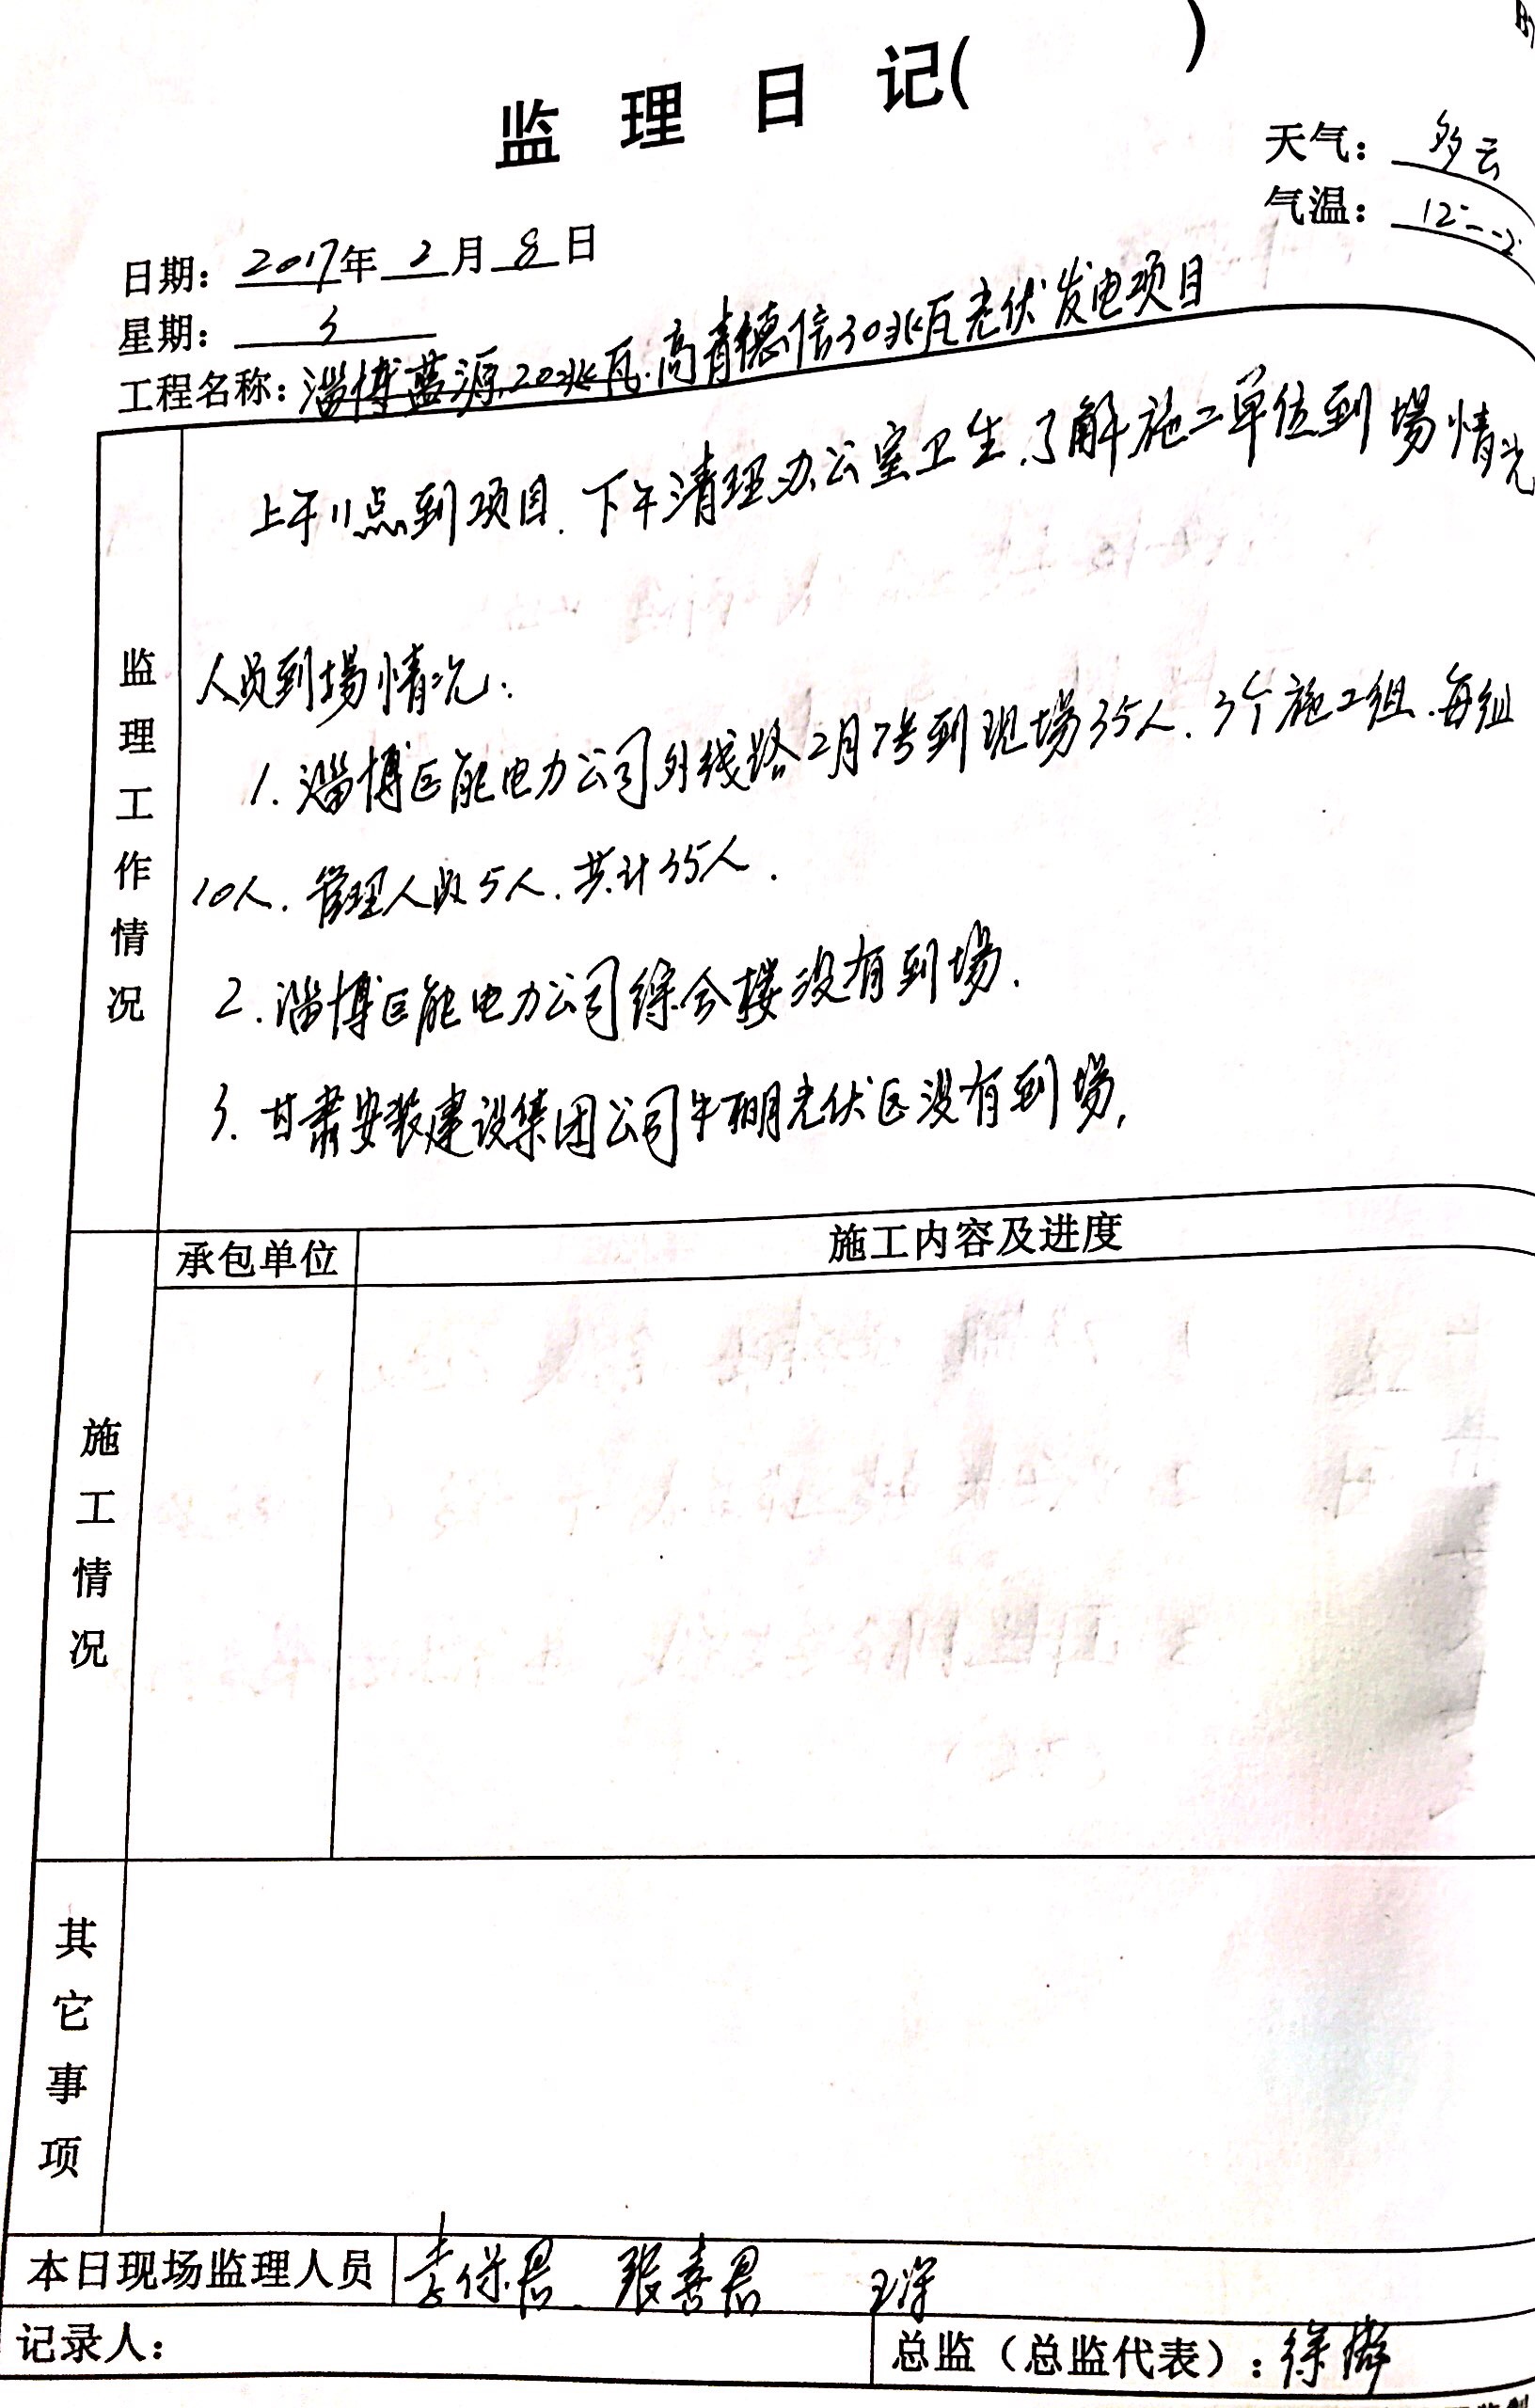 监理日记( )
天气：多云
气温：12--2
日期：2017年2月8日
星期：3
工程名称：淄博蓝源20兆瓦.高青德信30兆瓦光伏发电项目
监理工作情况
上午11点到项目.下午清理办公室卫生.了解施工单位到場情况
人员到場情况：
1.淄博巨能电力公司外线路2月7号到现場35人.3个施工组.每组
10人.管理人员5人.共计35人.
2.淄博巨能电力公司综合楼没有到場.
3.甘肃安装建设集团公司牛棚光伏区没有到場.
施工情况
承包单位 施工内容及进度
其它事项
本日现场监理人员 李保君.张喜君
记录人： 总监（总监代表）：徐